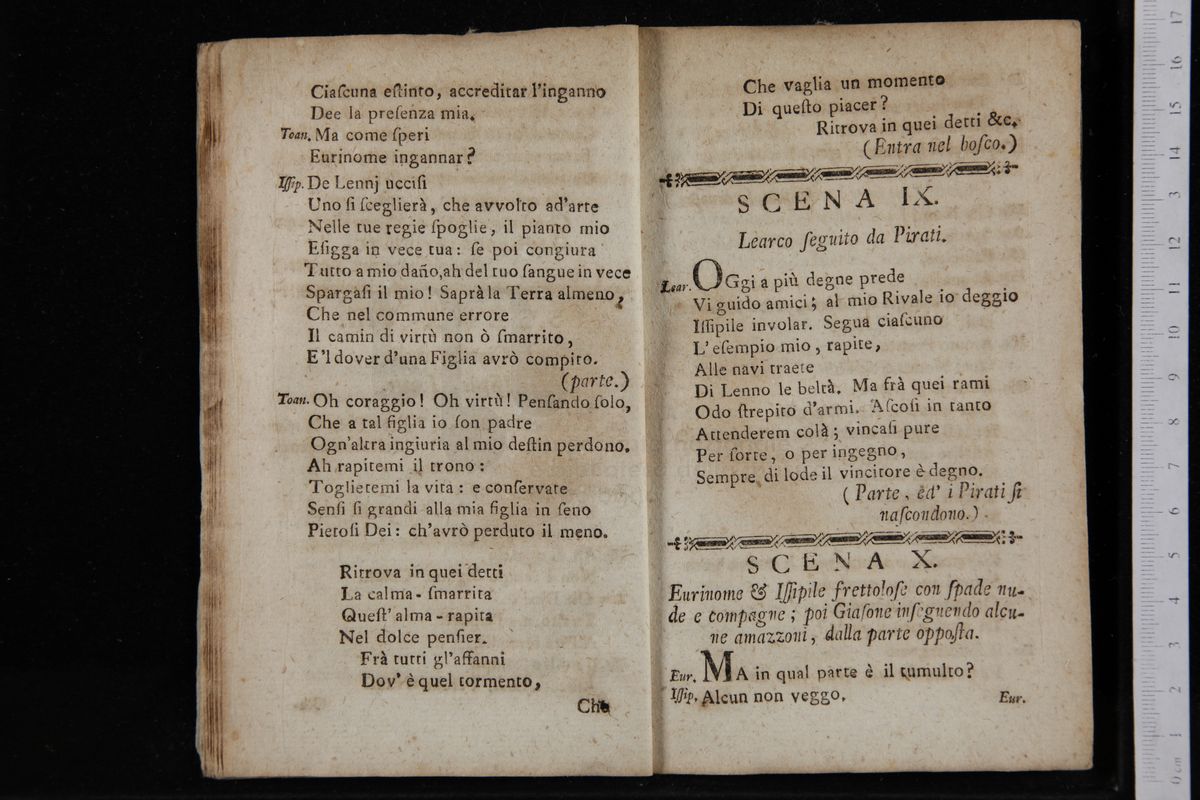 Ciaſcuna eſtinto, accreditar l'inganno
Dee la preſenza mia.
Toan. Ma come ſperi
Eurinome ingannar?
Iſſip. De Lennj ucciſi
Uno ſi ſceglierà, che avvolto ad'arte
Nelle tue regie ſpoglie, il pianto mio
Eſigga in vece tua: ſe poi congiura
Tutto a mio dan̄o,ah del tuo ſangue in vece
Spargaſi il mio! Saprà la Terra almeno,
Che nel commune errore
Il camin di virtù non ò ſmarrito,
E'l dover d'una Figlia avrò compito.
(parte.)
Toan. Oh coraggio! Oh virtù! Penſando ſolo,
Che a tal figlia io ſon padre
Ogn'altra ingiuria al mio deſtin perdono.
Ah rapitemi il trono:
Toglietemi la vita: e conſervate
Senſi ſi grandi alla mia figlia in ſeno
Pietoſi Dei: ch'avrò perduto il meno.
Ritrova in quei detti
La calma - ſmarrita
Queſt' alma - rapita
Nel dolce penſier.
Frà tutti gl'affanni
Dov' è quel tormento,
Che
Che vaglia un momento
Di queſto piacer?
Ritrova in quei detti &c.
(Entra nel boſco.)
SCENA IX.
Learco ſeguito da Pirati.
Lear. OGgi a più degne prede
Vi guido amici; al mio Rivale io deggio
Iſſipile involar. Segua ciaſcuno
L' eſempio mio, rapite,
Alle navi traete
Di Lenno le beltà. Ma frà quei rami
Odo ſtrepito d'armi. Aſcoſi in tanto
Attenderem colà; vincaſi pure
Per ſorte, o per ingegno,
Sempre di lode il vincitore è degno.
(Parte, ed' i Pirati ſi
naſcondono.)
SCENA X.
Eurinome & Iſſipile frettoloſe con ſpade nu-
de e compagne; poi Giaſone inſeguendo alcu-
ne amazzoni, dalla parte oppoſta.
Eur. MA in qual parte è il tumulto?
Iſſip. Alcun non veggo.
Eur.
17
16
15
14
13
12
11
10
9
8
7
6
5
4
3
2
1
0 cm